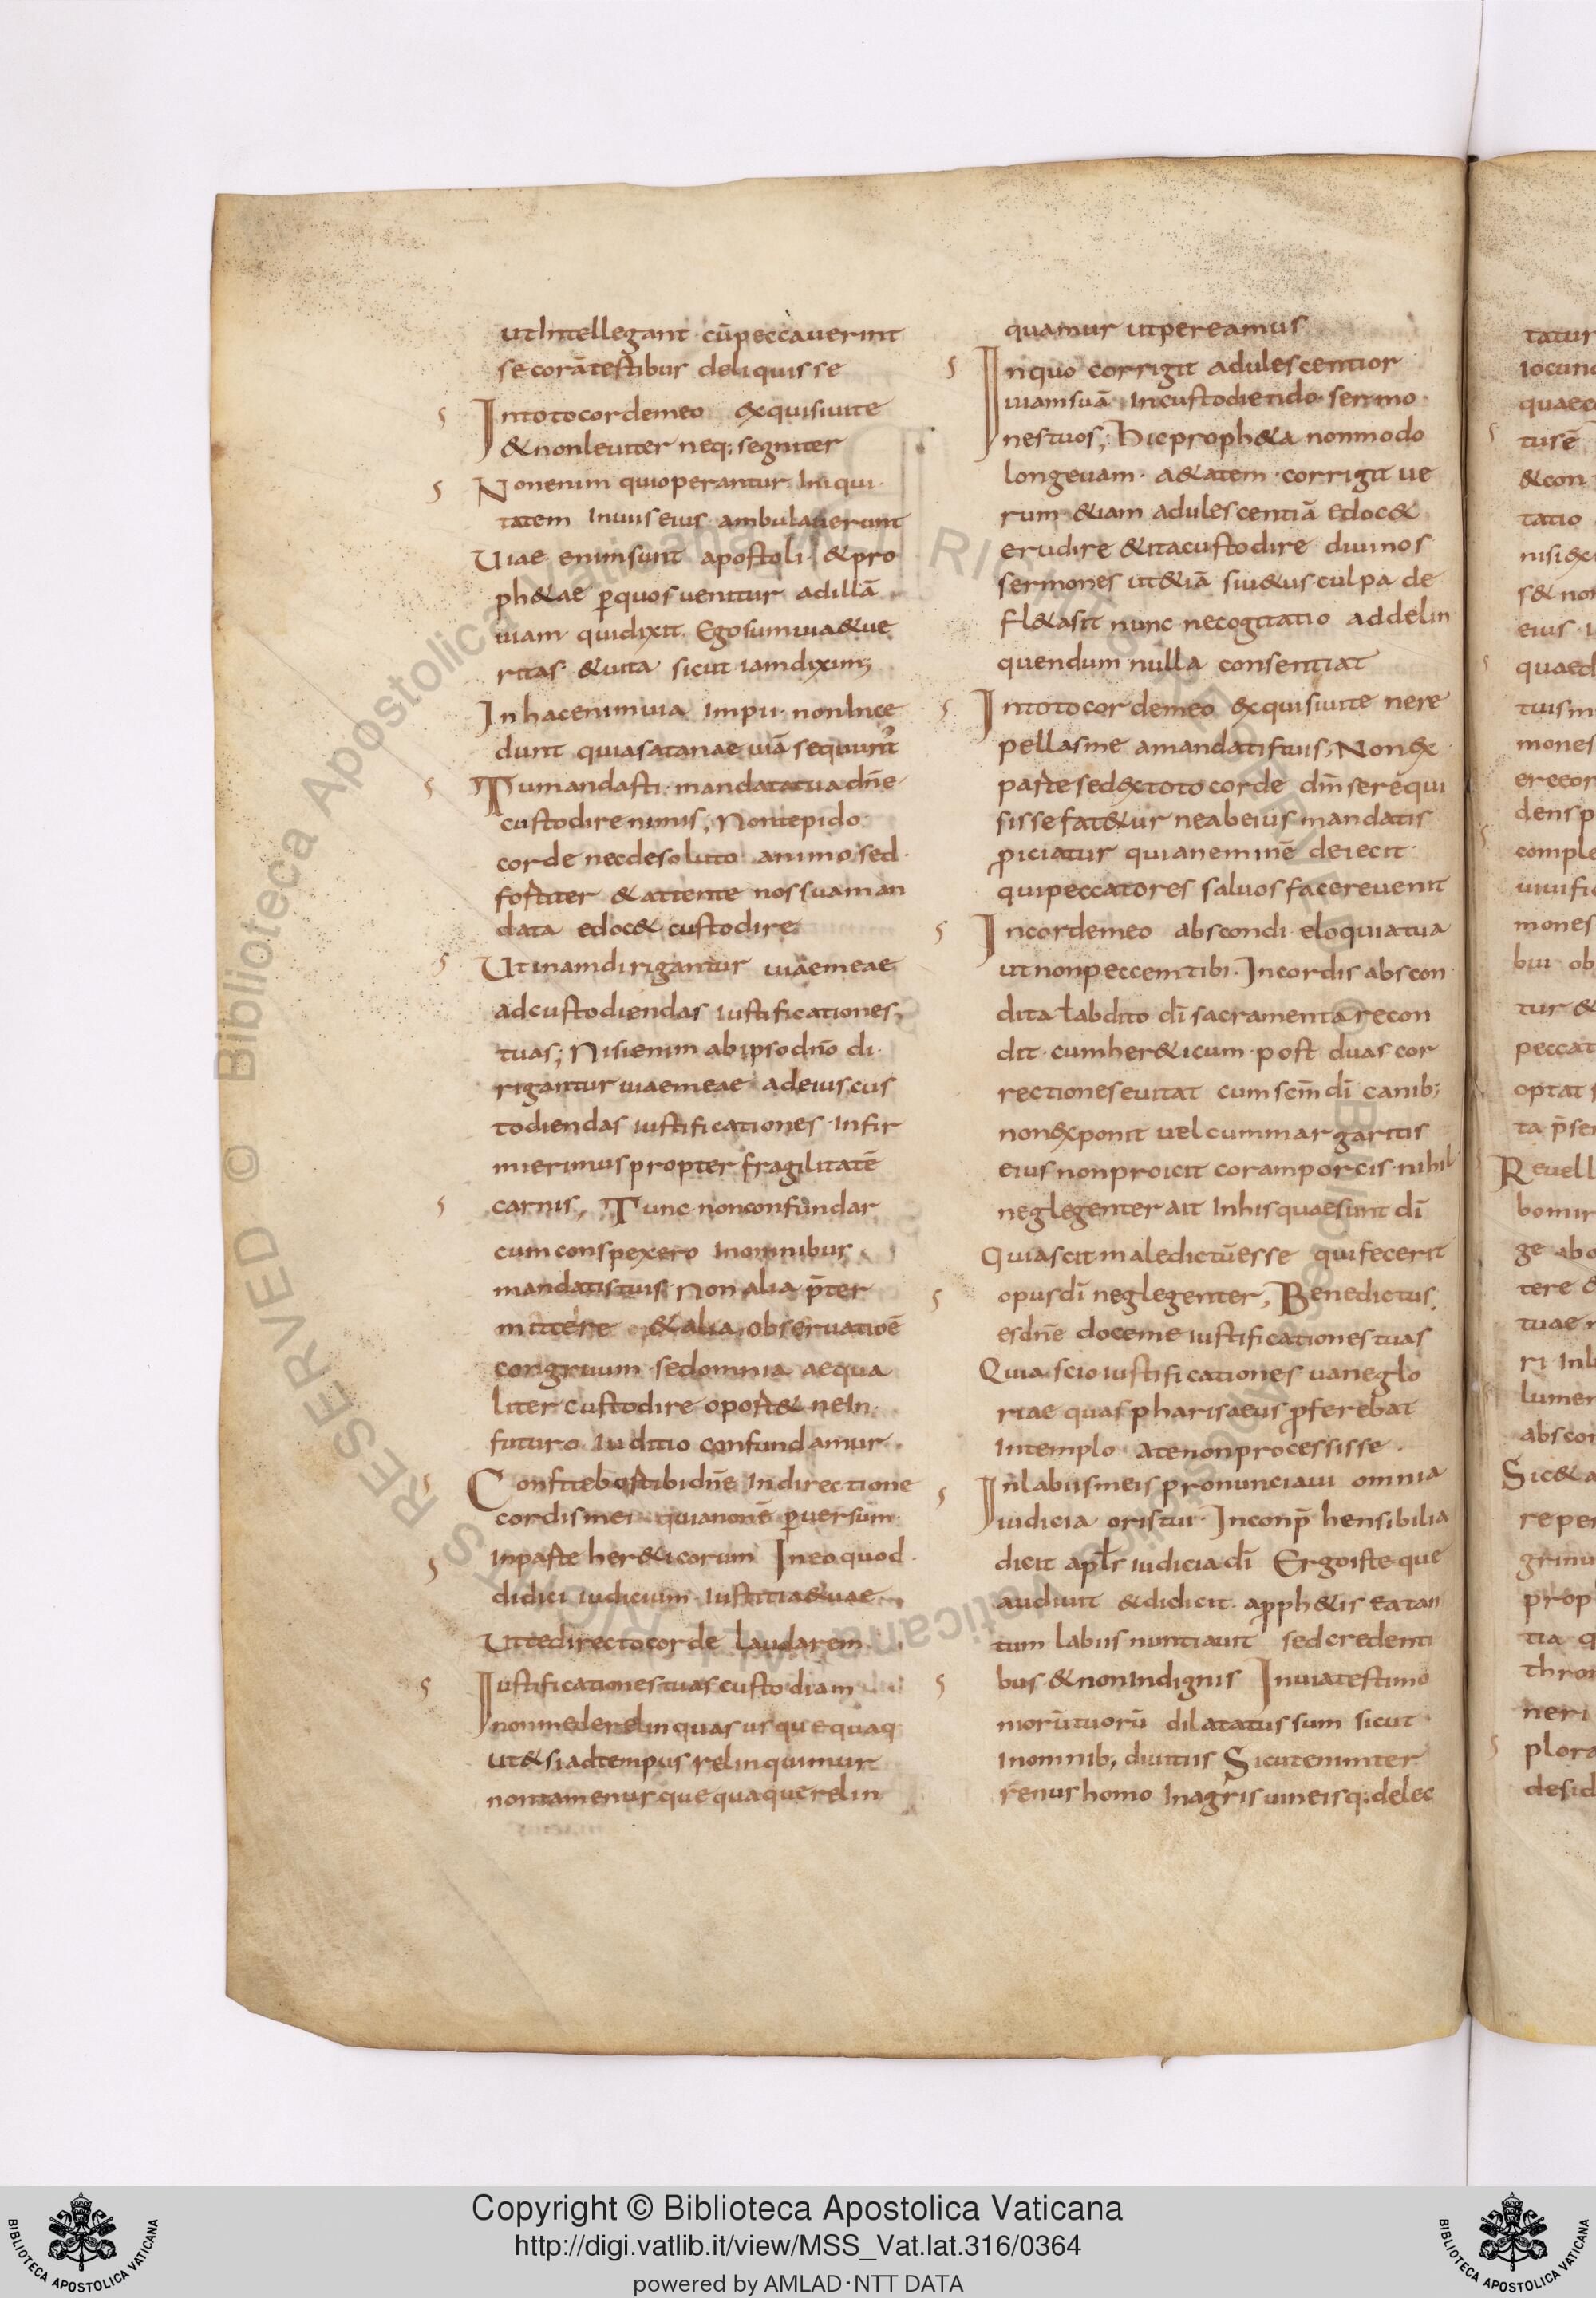 ut intellegant cū peccaverint
se corā testibus deliquisse
In toto corde meo exquisivi te
& non leviter neq; segniter
Non enim qui operantur iniqui
tatem in viis eius ambulaverunt
Viae enim sunt apostoli & pro
ph&ae p quos venitur ad illā
viam qui dixit Ego sum via & ve
ritas & vita sicut iam diximus
In hac enim via impii non ince
dunt quia satanae viā sequunt
Tu mandasti mandata tua dn̄e
custodire nimis; Non tepido
corde nec desoluto animo sed
fortiter & attente nos sua man
data edoc& custodire
Utinam dirigantur viae meae
ad custodiendas iustificationes
tuas; Nisi enim ab ipso dn̄o di
rigantur viae meae ad eius cus
todiendas iustificationes infir
mi erimus propter fragilitatē
carnis, Tunc non confundar
cum conspexero in omnibus
mandatis tuis Non alia p̄ter
mittere & alia observatioē
congruum sed omnia aequa
liter custodire oport& ne in
futuro iuditio confundamur
Confitebor tibi dn̄e in directione
cordis mei quia non ē pversum
in parte her&icorum In eo quod
didici iudicium iustitia & vae
Ut te directo corde laudarem
Iustificationes tuas custodiam
non me derelinquas usquequaq
ut & si ad tempus relinquimur
non tamen usquequaque relin
quamur ut pereamus
In quo corrigit adulescentior
viam suā in custodiendo sermo
nes tuos; Hic proph&a non modo
longevam a&atem corrigit ve
rum &iam adulescentiā edoc&
erudire & ita custodire divinos
sermones ut &iā si v&us culpa de
fl&a sit nunc nec ogitatio ad delin
quendum nulla consentiat
In toto corde meo exquisivi te ne re
pellas me a mandatis tuis; Non ex
parte sed ex toto corde dn̄m se requi
sisse fat&ur ne ab eius mandatis
piciatur quia neminē deiecit
qui peccatores salvos facere venit
In corde meo abscondi eloquia tua
ut non peccem tibi. In cordis abscon
dita ł abdito dī sacramenta recon
dit cum her&icum post duas cor
rectiones evitat cum scm̄ dī canib;
non exponit vel cum margaritis
eius non proicit coram porcis nihil
neglegenter ait in his quae sunt dī
Quia scit maledictū esse qui fecerit
opus dī neglegenter, Benedictus
es dn̄e doce me iustificationes tuas
Quia scio iustificationes vane glo
riae quas pharisaeus pferebat
in templo a te non processisse
In labiis meis pronunciavi omnia
iudicia oris tui. Inconp̄hensibilia
dicit apłs iudicia dī Ergo iste que
audivit & didicit a pph&is ea tan
tum labiis nuntiavit sed credenti
bus & non indignis In via testimo
niorū tuorū dilatatus sum sicut
in omnib; divitiis Sicut enim ter
renus homo in agris vineisq; delec
tatur
iocund
tur ē
& con
tatio
eius
tuis m
mones
comple
vivific
mones
bui ob
tur &
peccat
optat
Revell
ge abo
tere &
lumen
abscon
Sic & a
prop
tia q
thron
neri
plora
desid
Copyright © Biblioteca Apostolica Vaticana
http://digi.vatlib.it/view/MSS_Vat.lat.316/0364
powered by AMLAD·NTT DATA
BIBLIOTECA APOSTOLICA VATICANA
BIBLIOTECA APOSTOLICA VATICANA